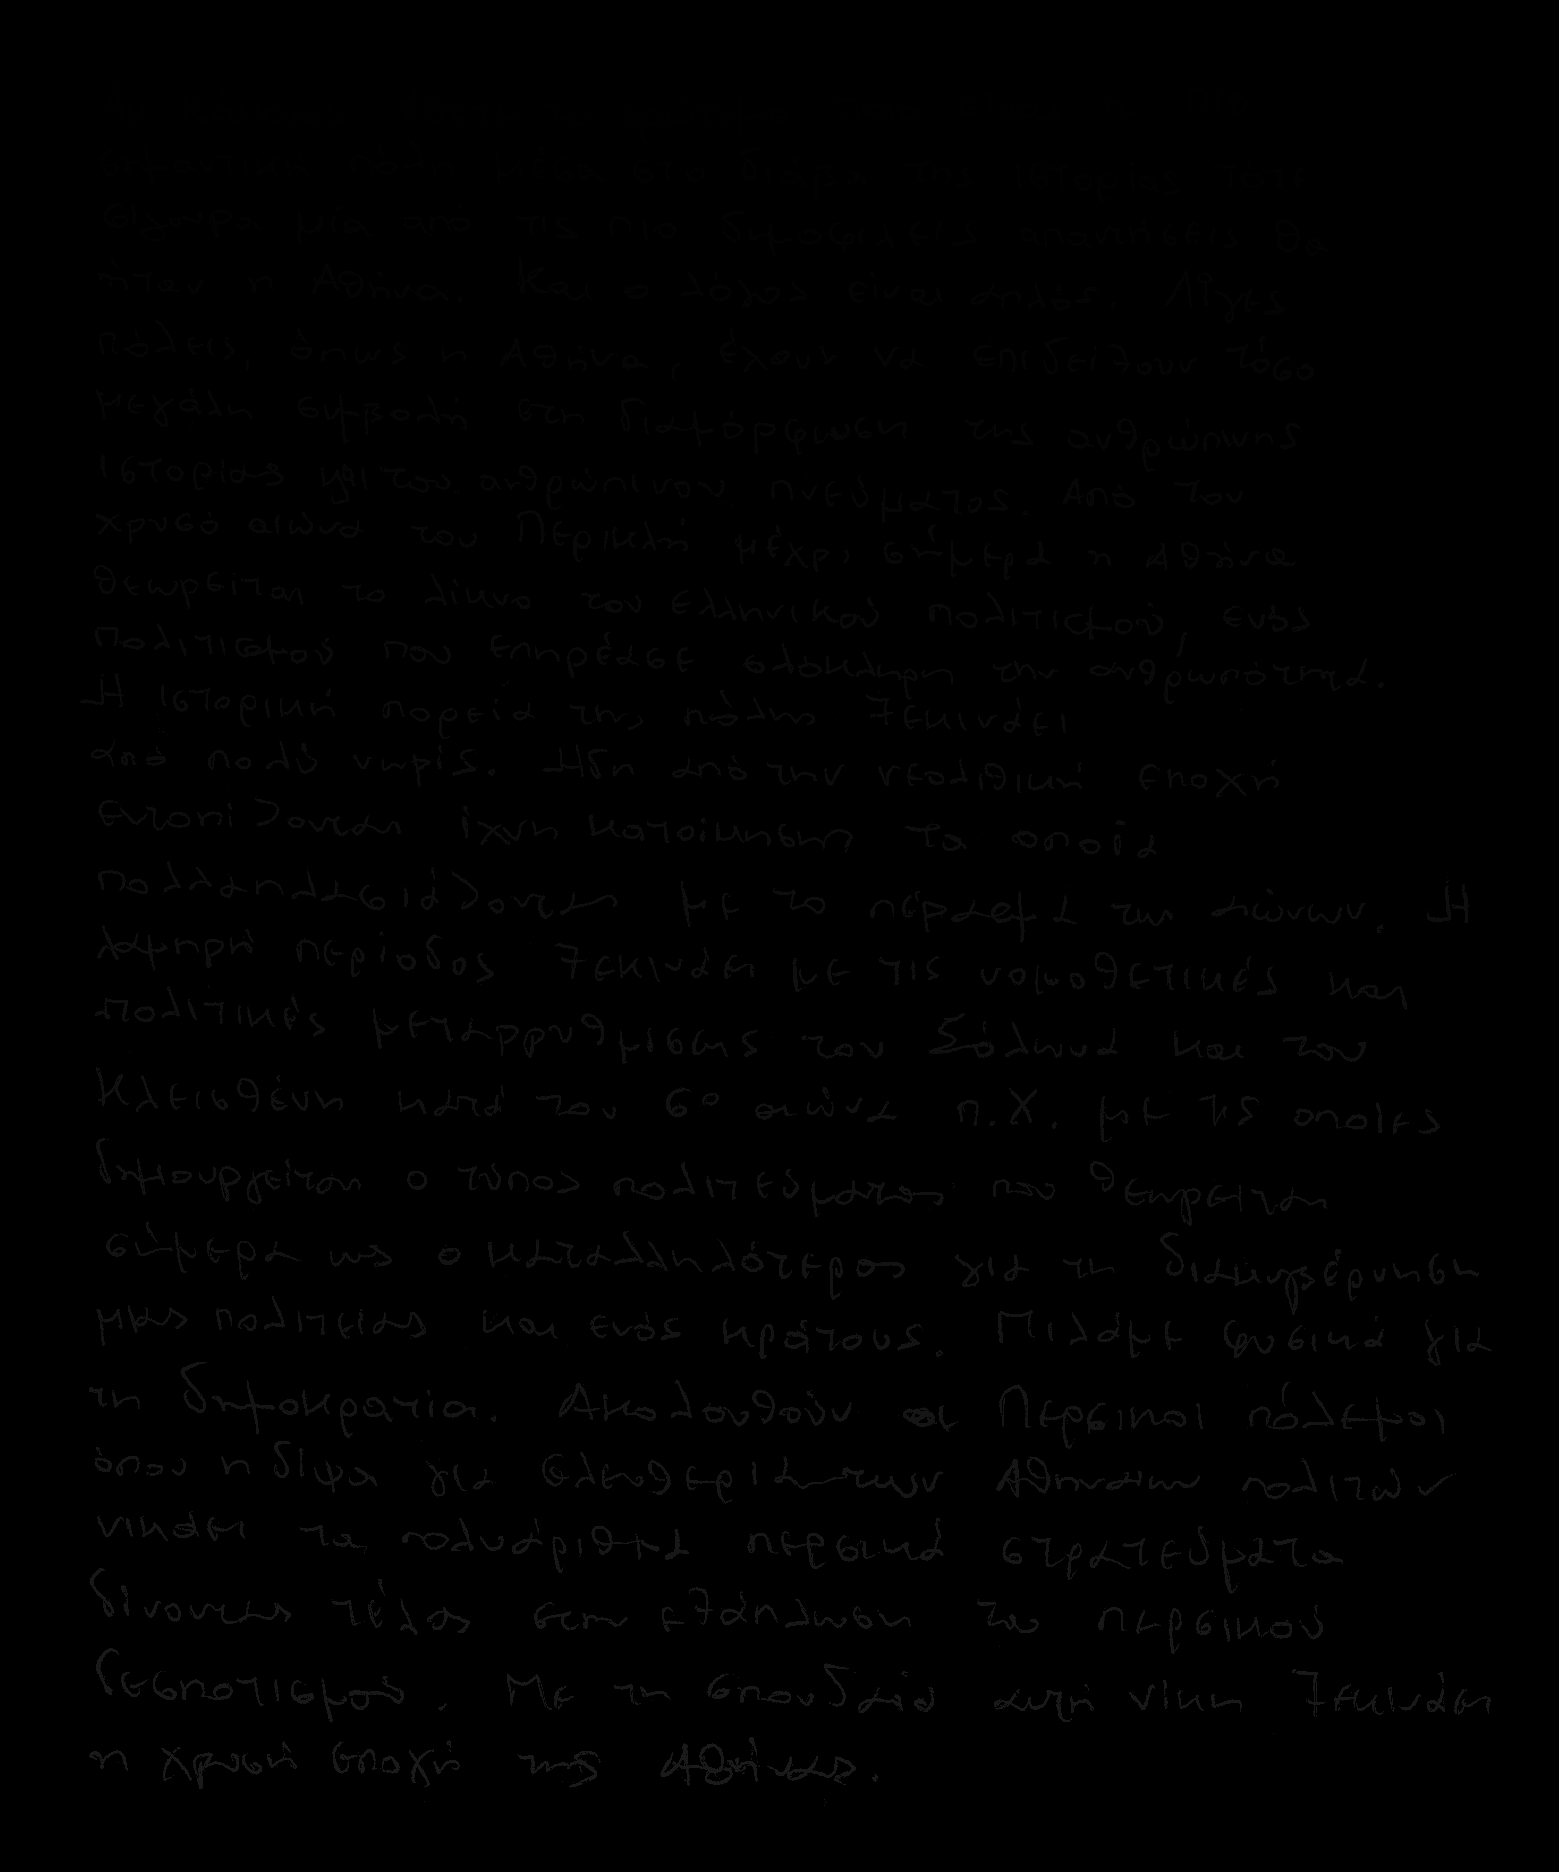 σημαντική πόλη μέσα στο διάβα της ιστορίας τότε
σίγουρα μία από τις πιο δημοφιλείς απαντήσεις θα
ήταν η Αθήνα. Και ο λόγος είναι απλός. Λίγες
πόλεις, όπως η Αθήνα, έχουν να επιδείξουν τόσο
μεγάλη συμβολή στη διαμόρφωση της ανθρώπινης
ιστορίας και του ανθρώπινου πνεύματος. Από τον
χρυσό αιώνα του Περικλή μέχρι σήμερα η Αθήνα
θεωρείται το λίκνο του ελληνικού πολιτισμού, ενός
πολιτισμού που επηρέασε ολόκληρη την ανθρωπότητα.
Η ιστορική πορεία της πόλης ξεκινάει
από πολύ νωρίς. Ηδη από την νεολιθική εποχή
εντοπίζονται ίχνη κατοίκησης τα οποία
πολλαπλασιάζονται με το πέρασμα των αιώνων. Η
λαμπρή περίοδος ξεκινάει με τις νομοθετικές και
πολιτικές μεταρρυθμίσεις του Σόλωνα και του
Κλεισθένη κατά τον 6ο αιώνα π.Χ. με τις οποίες
δημιουργείται ο τύπος πολιτεύματος που θεωρειται
σήμερα ως ο καταλληλότερος για τη διακυβέρνηση
μιας πολιτείας και ενός κράτους. Μιλάμε φυσικά για
τη δημοκρατία. Ακολουθούν οι Περσικοί πόλεμοι
όπου η δίψα για ελευθερία των Αθηναίων πολιτών
νικάει τα πολυάριθμα περσικά στρατεύματα
δίνοντας τέλος στην εξάπλωση του περσικού
δεσποτισμού. Με τη σπουδαία αυτή νίκη ξεκινάει
η χρυσή εποχή της Αθήνας.